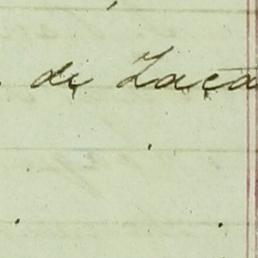 de Zaca